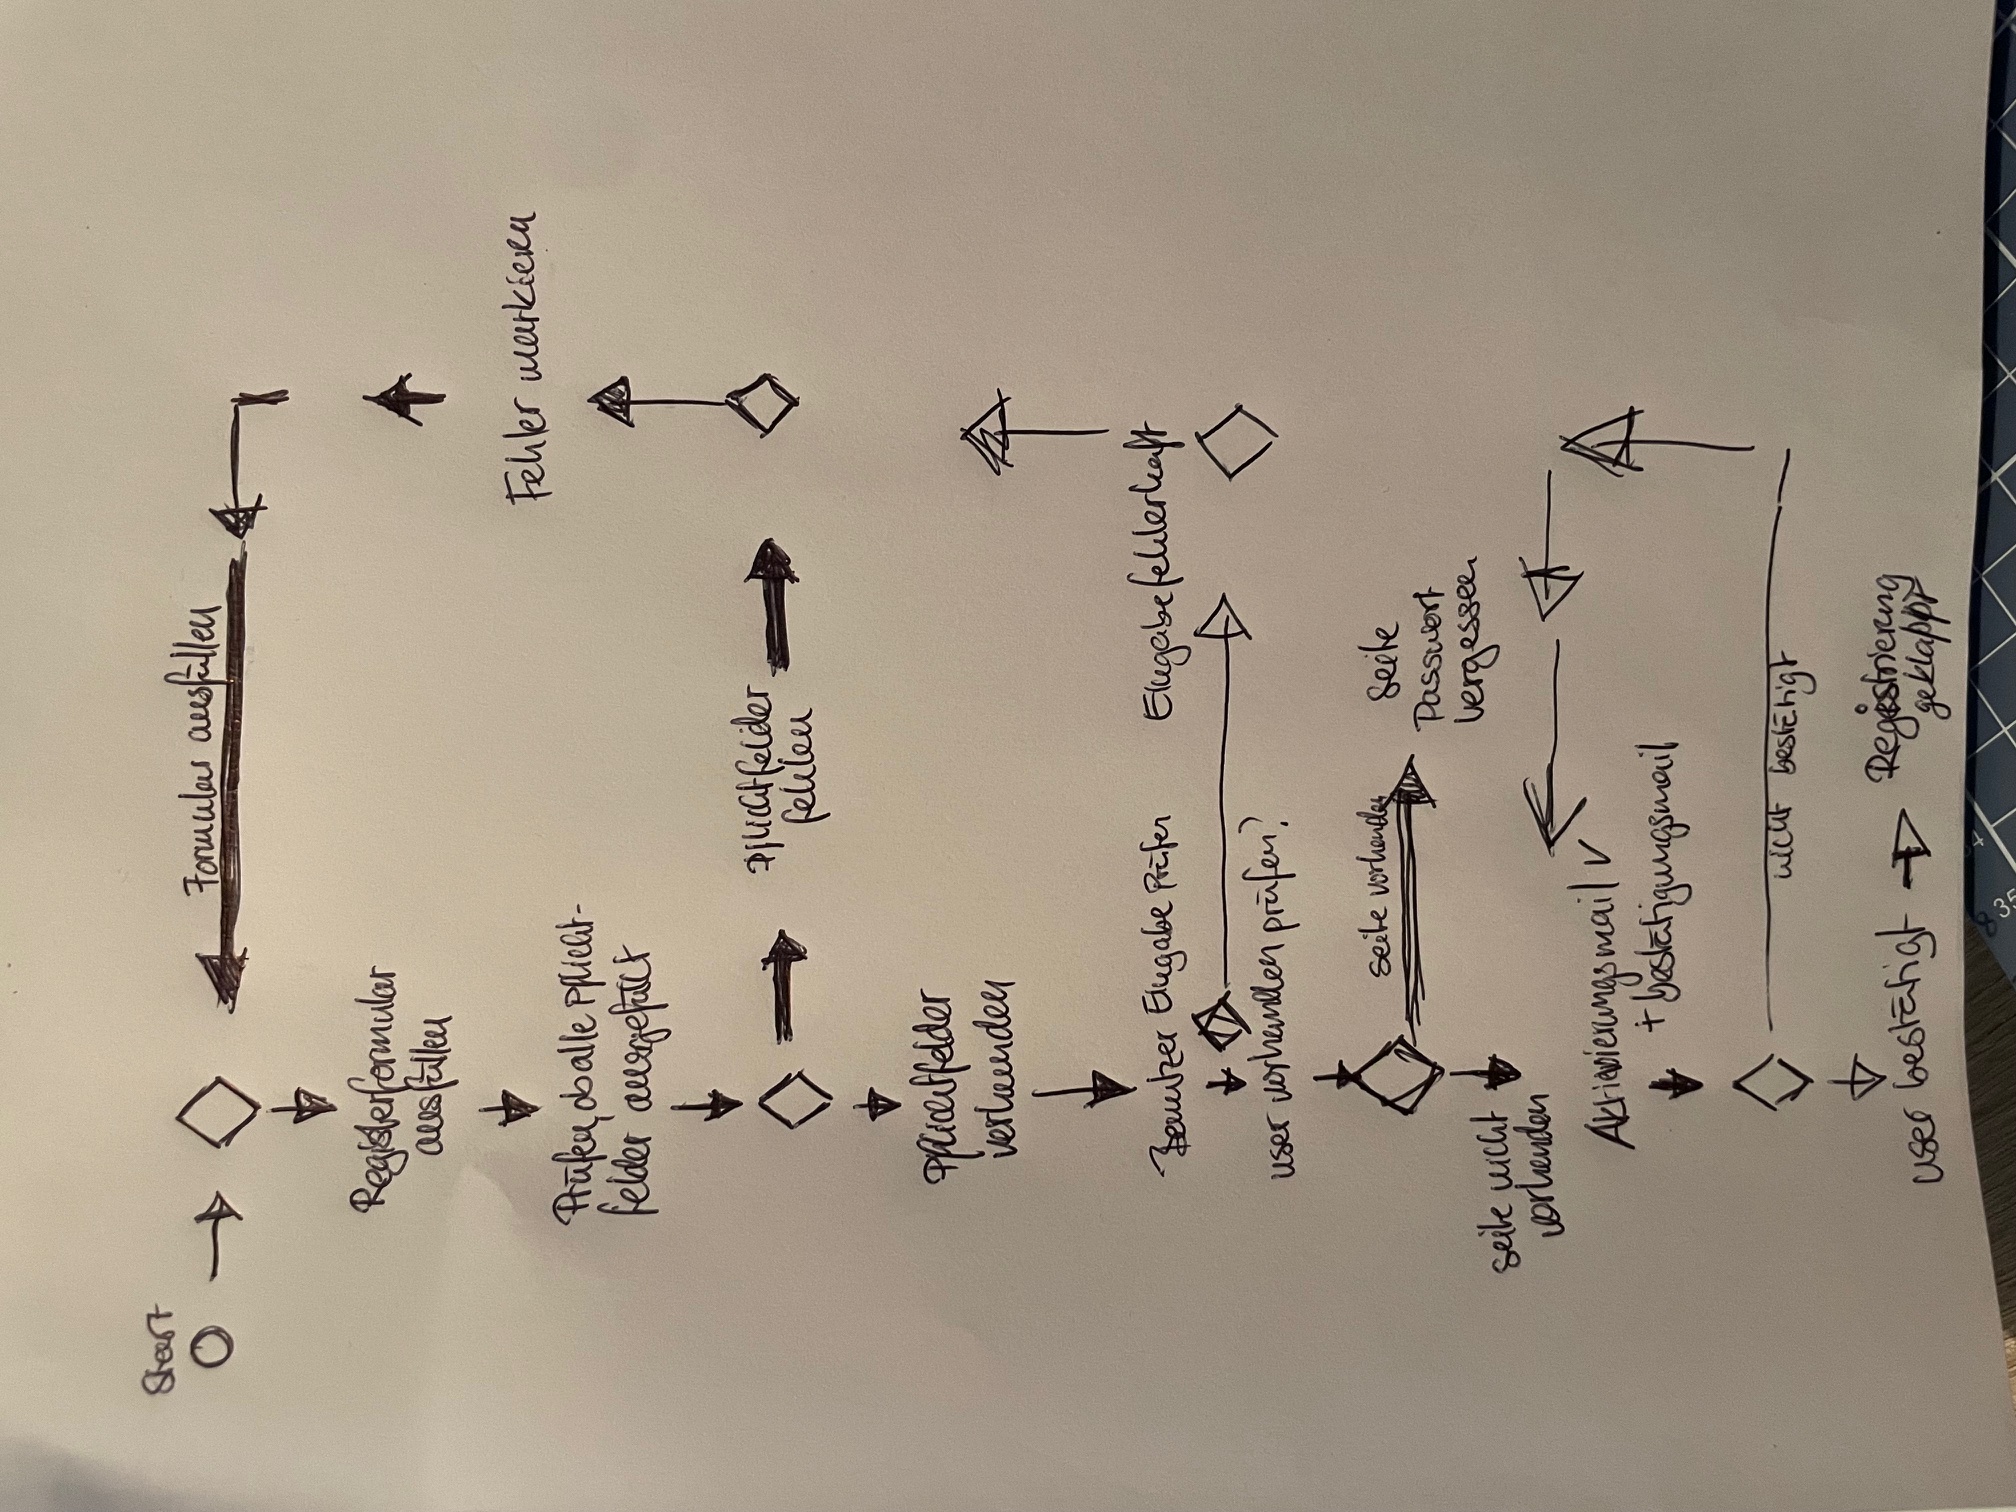 Start
Formular ausfüllen
Registerformular
ausfüllen
Fehler markieren
Prüfen, ob alle Pflicht-
felder ausgefüllt
Pflichtfelder
fehlen
Pflichtfelder
vorhanden
Benutzer Eingabe Prüfen
Eingabe fehlerhaft
user vorhanden prüfen?
seite vorhanden
Seite
Passwort
vergessen
seite nicht
vorhanden
Aktivierungsmail ✓
+ bestätigungsmail
nicht bestätigt
user bestätigt
Registrierung
geklappt